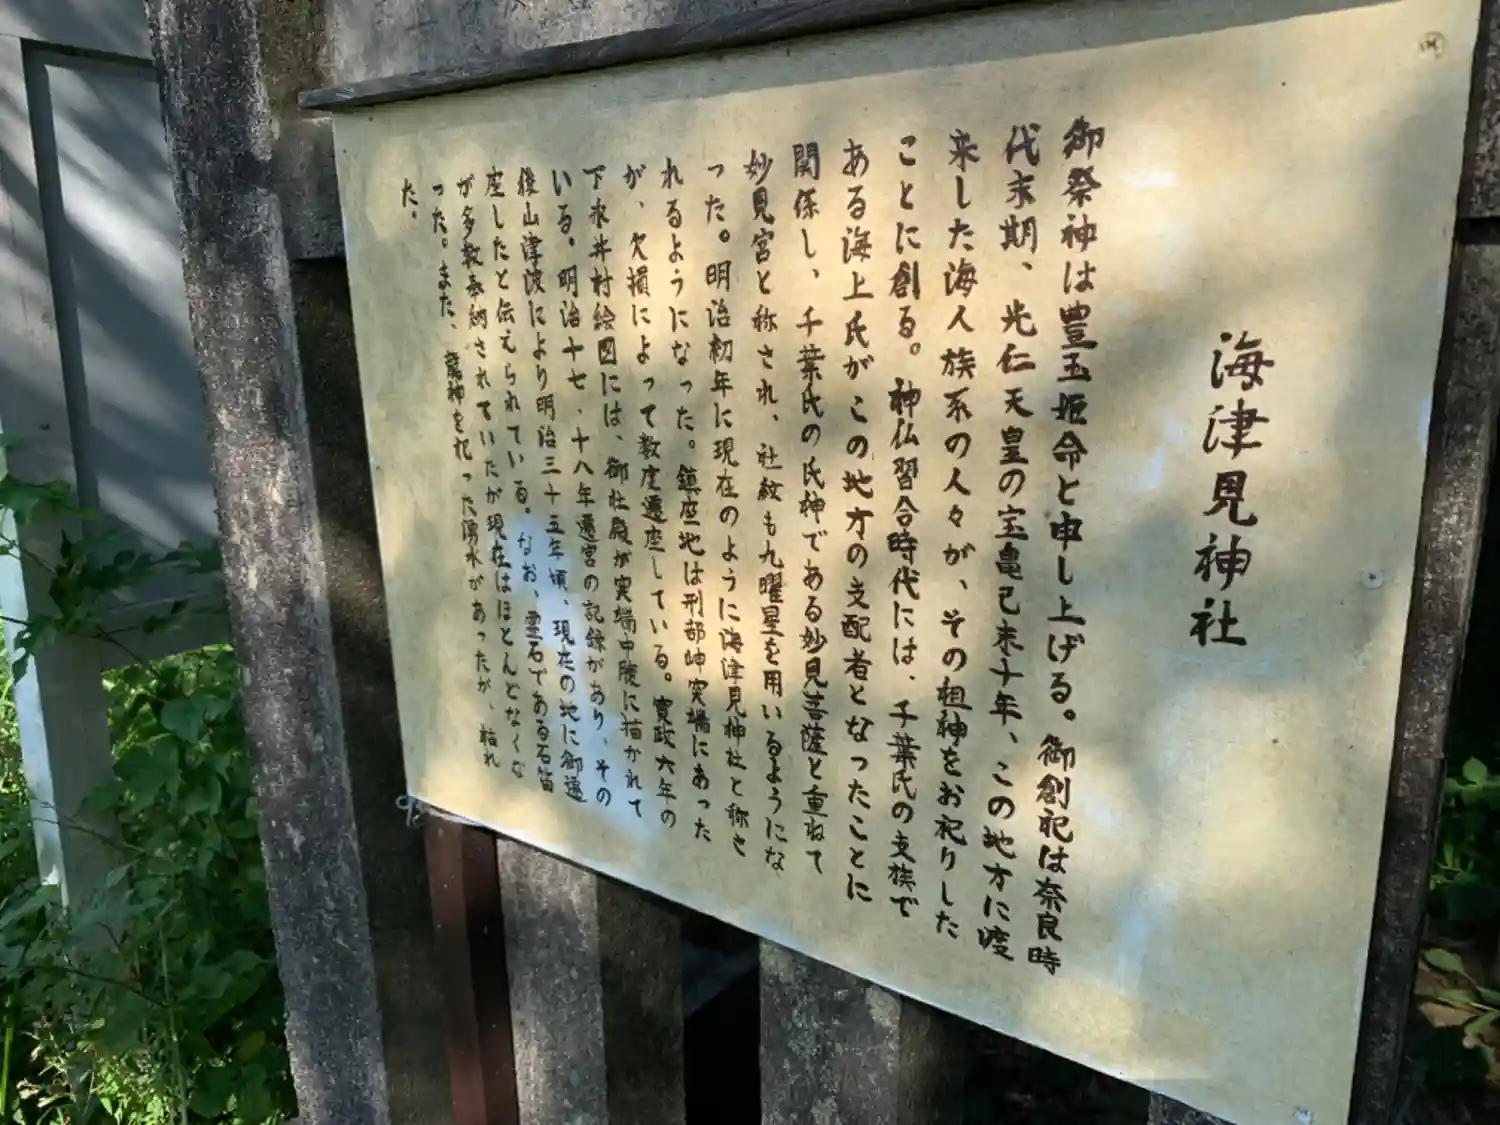 海津見神社
御祭神は豊玉姫命と申し上げる。御創祀は奈良時
代末期、光仁天皇の宝亀己未十年、この地方に渡
来した海人族系の人々が、その祖神をお祀りした
ことに創る。神仏習合時代には、千葉氏の支族で
ある海上氏がこの地方の支配者となったことに
関係し、千葉氏の氏神である妙見菩薩と重ねて
妙見宮と称され、社紋も九曜星を用いるようにな
った。明治初年に現在のように海津見神社と称さ
れるようになった。鎮座地は刑部岬突端にあった
が、欠損によって数度遷座している。寛政六年の
下永井村絵図には、御社殿が突端中腹に描かれて
いる。明治十七、十八年遷宮の記録があり、その
後山津波により明治三十五年頃、現在の地に御遷
座したと伝えられている。なお、霊石である石笛
が多数奉納されていたが現在はほとんどなくな
った。また、龍神を祀った湧水があったが、枯れ
た。